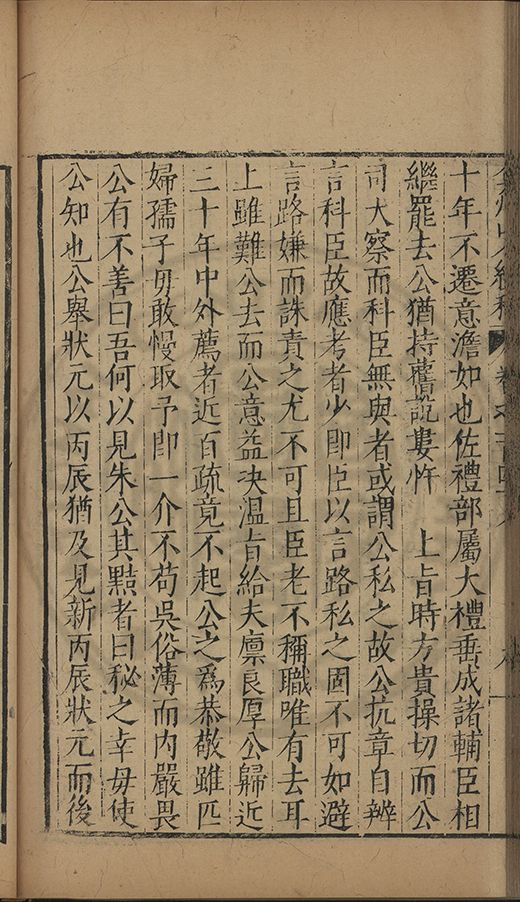 十年不遷意澹如也佐禮部屬大禮垂成諸輔臣相
繼罷去公猶持舊說婁忤　上旨時方貴操切而公
司大察而科臣無與者或謂公私之故公抗章自辨
言科臣故應考者少即臣以言路私之固不可如避
言路嫌而誅責之尤不可且臣老不稱職唯有去耳
上雖難公去而公意益决溫旨給夫廪良厚公歸近
三十年中外薦者近百疏竟不起公之爲恭敬雖匹
婦孺子毋敢慢取予即一介不苟吳俗薄而內嚴畏
公有不善曰吾何以見朱公其黠者曰秘之幸毋使
公知也公舉狀元以丙辰猶及見新丙辰狀元而後